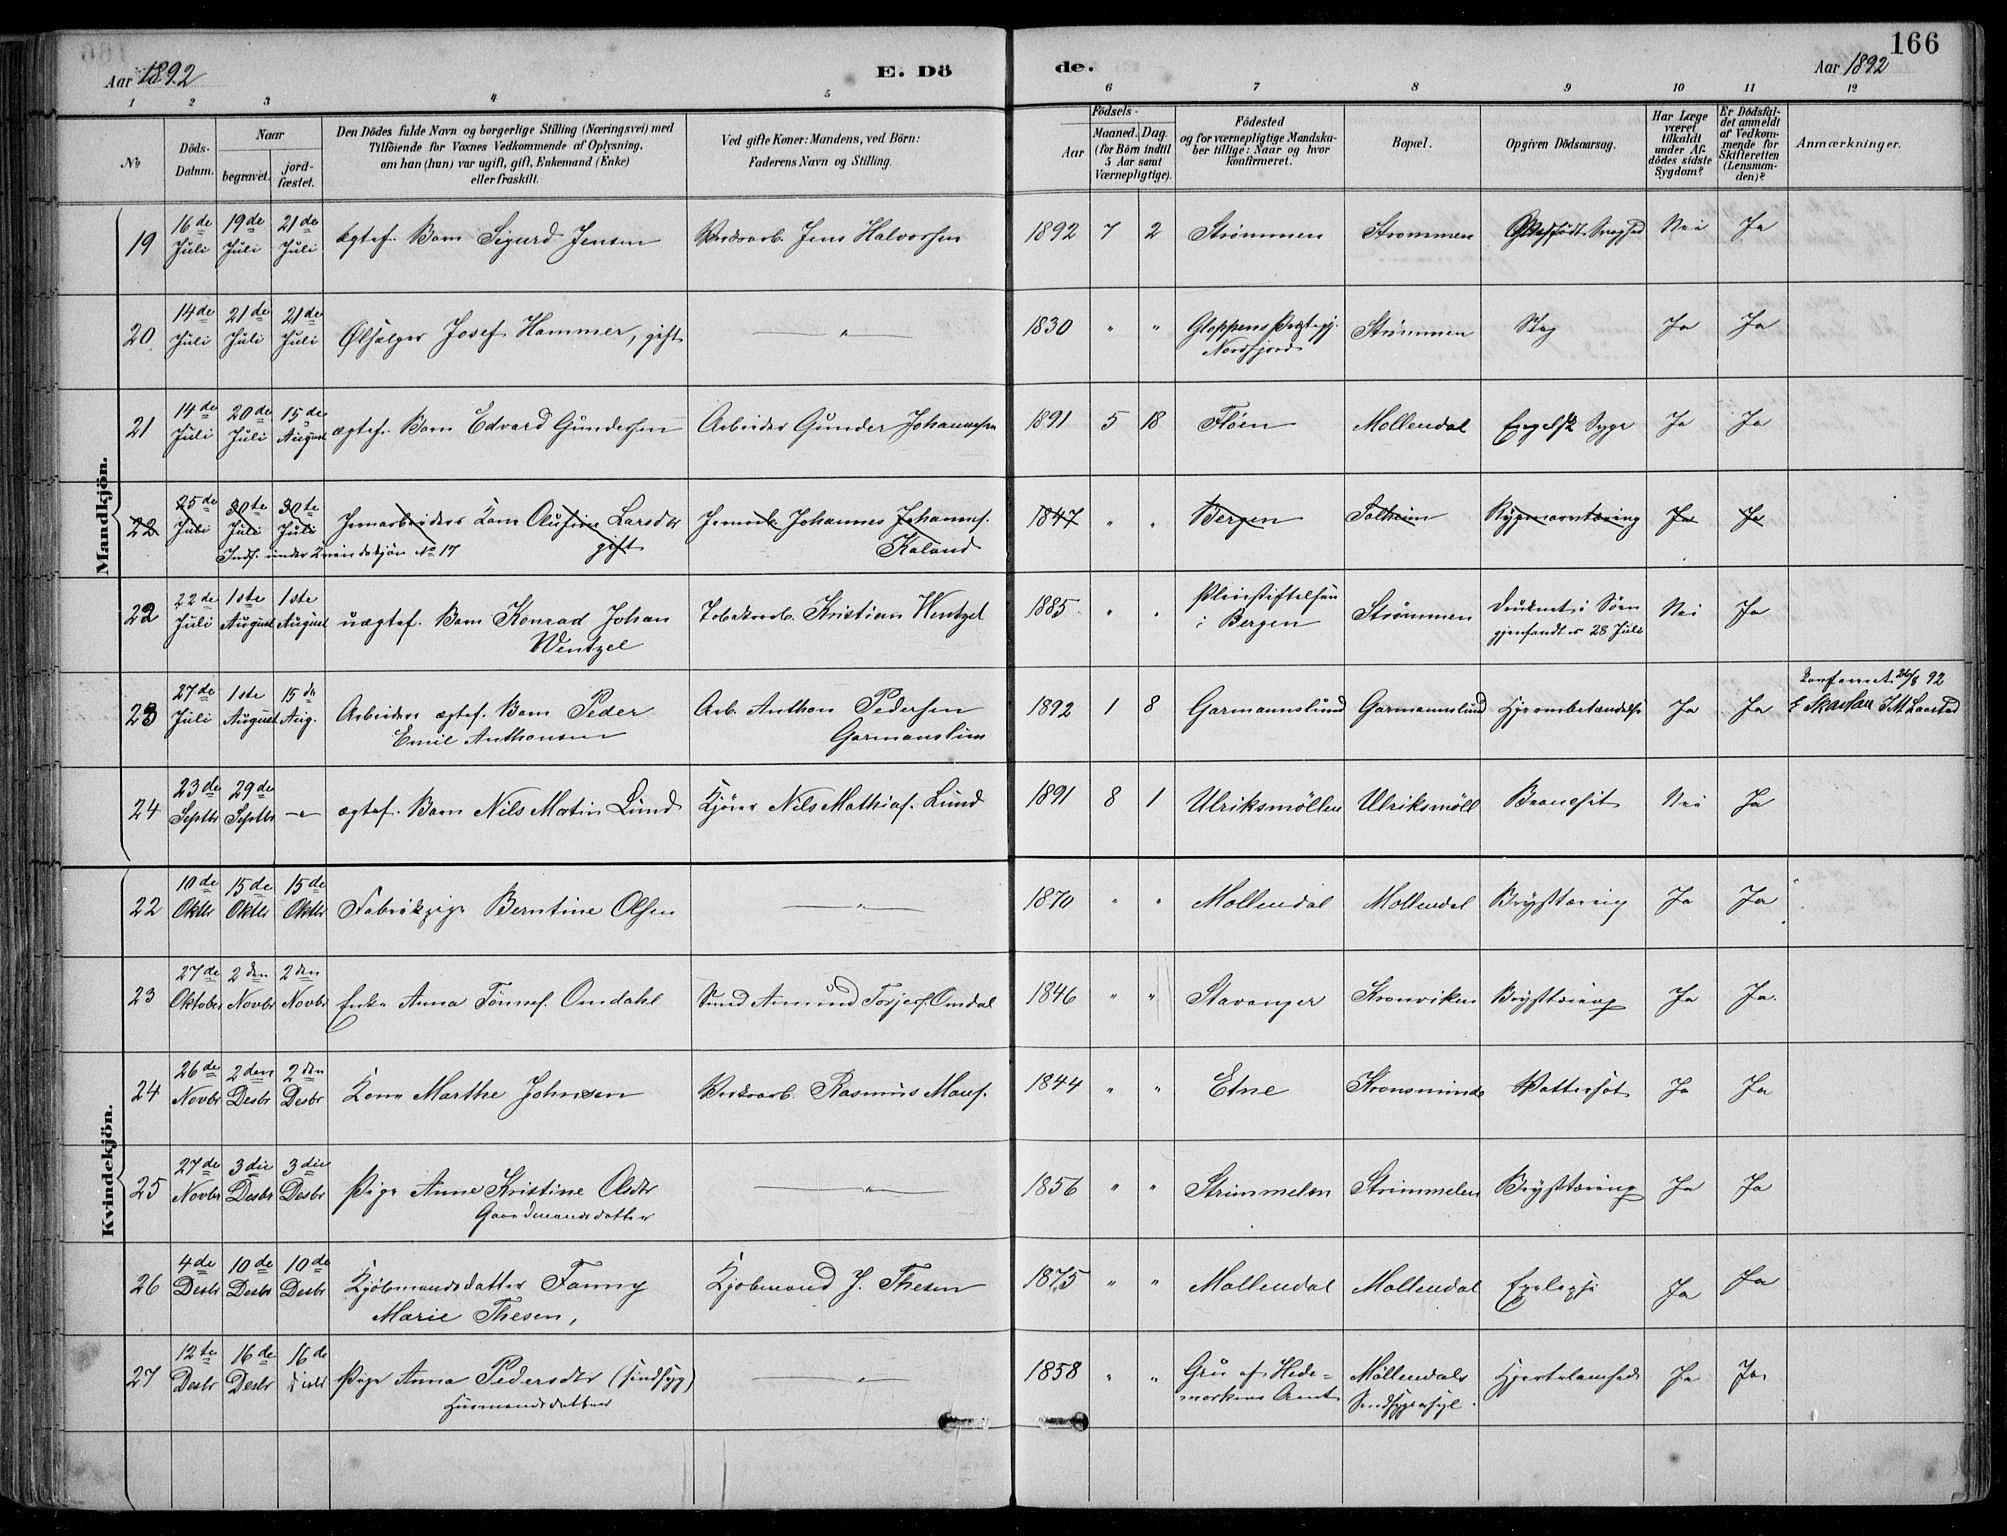 166
Aar 1892
E. Dö
de.
Aar 1892
1 2 3 4 5 6 7 8 9 10 11 12
No
Döds-Datum.
Naar
begravet.
jord-fæstet.
Den Dödes fulde Navn og borgerlige Stilling (Næringsvei) med
Tilföiende for Voxnes Vedkommende af Oplysning,
om han (hun) var ugift, gift, Enkemand (Enke)
eller fraskilt.
Ved gifte Koner: Mandens, ved Börn:
Faderens Navn og Stilling.
Födsels-
Aar
Maaned. Dag.
(for Börn indtil
5 Aar samt
Værnepligtige).
Födested
og for værnepligtige Mandska-
ber tillige: Naar og hvor
konfirmeret.
Bopæl.
Opgiven Dödsaarsag.
Har Læge
været
tilkaldt
under Af-
dödes sidste
Sygdom?
Er Dödsfal-
det anmeldt
af Vedkom-
mende for
Skifteretten
(Lensman-
den)?
Anmærkninger.
Mandkjön.
19 16de Juli 19de Juli 21de Juli ægtef. Barn Sigurd Jensen Værksarb. Jens Halvorsen 1892 7 2 Strømmen Strømmen Medfødt Svaghed Nei Ja
20 14de Juli 21de Juli 21de Juli Ølsælger Josef Hammer, gift — " — 1830 " " Gloppens Prstgj. Nordfjord Strømmen Slag Ja Ja
21 14de Juli 20de Juli 15de August ægtef. Barn Edvard Gundersen Arbeider Gunder Johannesen 1891 5 18 Fløen Møllendal Engelsk Syge Ja Ja
22 25de Juli 30te Juli 30te Juli Jernarbeiders Kone Olufine Larsdtr gift Jernarb. Johannes Johannes. Kaland 1847 " " Bergen Solheim Rygmarvstæring Ja Ja
Indf. under Kvindekjön No 17
22 22de Juli 1ste August 1ste August uægtef. Barn Konrad Johan Wentzel Tobaksarb. Kristian Wentzel 1885 " " Pleiestiftelsen i Bergen Strømmen Druknet i Søen gjenfandt er 28 Juli Nei Ja
23 27de Juli 1ste August 15de Aug. Arbeiders ægtef. Barn Peder Emil Anthonsen Arb. Anthon Pedersen Garmanslun 1892 1 8 Garmannslund Garmannslund Hjernebetændelse Ja Ja 26/8 92
24 23de Septbr 29de Septbr — " — ægtef. Barn Nils Martin Lund Kjører Nils Mathias. Lund 1891 8 1 Ulriksmøllen Ulriksmöll Bronchit Nei Ja
Kvindekjön.
22 10de Oktbr 15de Oktbr 15de Oktbr Fabrikpige Berntine Olsen — " — 1870 " " Møllendal Møllendal Brysttæring Ja Ja
23 27de Oktober 2den Novbr 2den Novbr Enke Anna Tönnes. Omdahl Smed Amund Torjes. Omdal 1846 " " Stavanger Kronviken Brysttæring Ja Ja.
24 26de Novbr 2den Desbr 2den Desbr Kone Marthe Johnsen Værksarb. Rasmus Mons. 1844 " " Etne Kronsminde Vattersot Ja Ja
25 27de Novbr 3die Desbr 3die Desbr Pige Anne Kristine Olsdtr Gaardmandsdatter — " — 1856 " " Strimmelen Strimmelen Brysttæring Ja Ja
26 4de Desbr 10de Desbr 10de Desbr Kjöbmandsdatter Fanny Marie Thesen, Kjøbmand J. Thesen 1875 " " Møllendal Møllendal Epelepsi Ja Ja
27 12te Desbr 16de Desbr 16de Desbr Pige Anna Pedersdtr (sindssyg) Husmandsdatter — " — 1858 " " Grue af Hede=markens Amt Møllendals Sindssygeasyl. Hjertelamhed Ja Ja